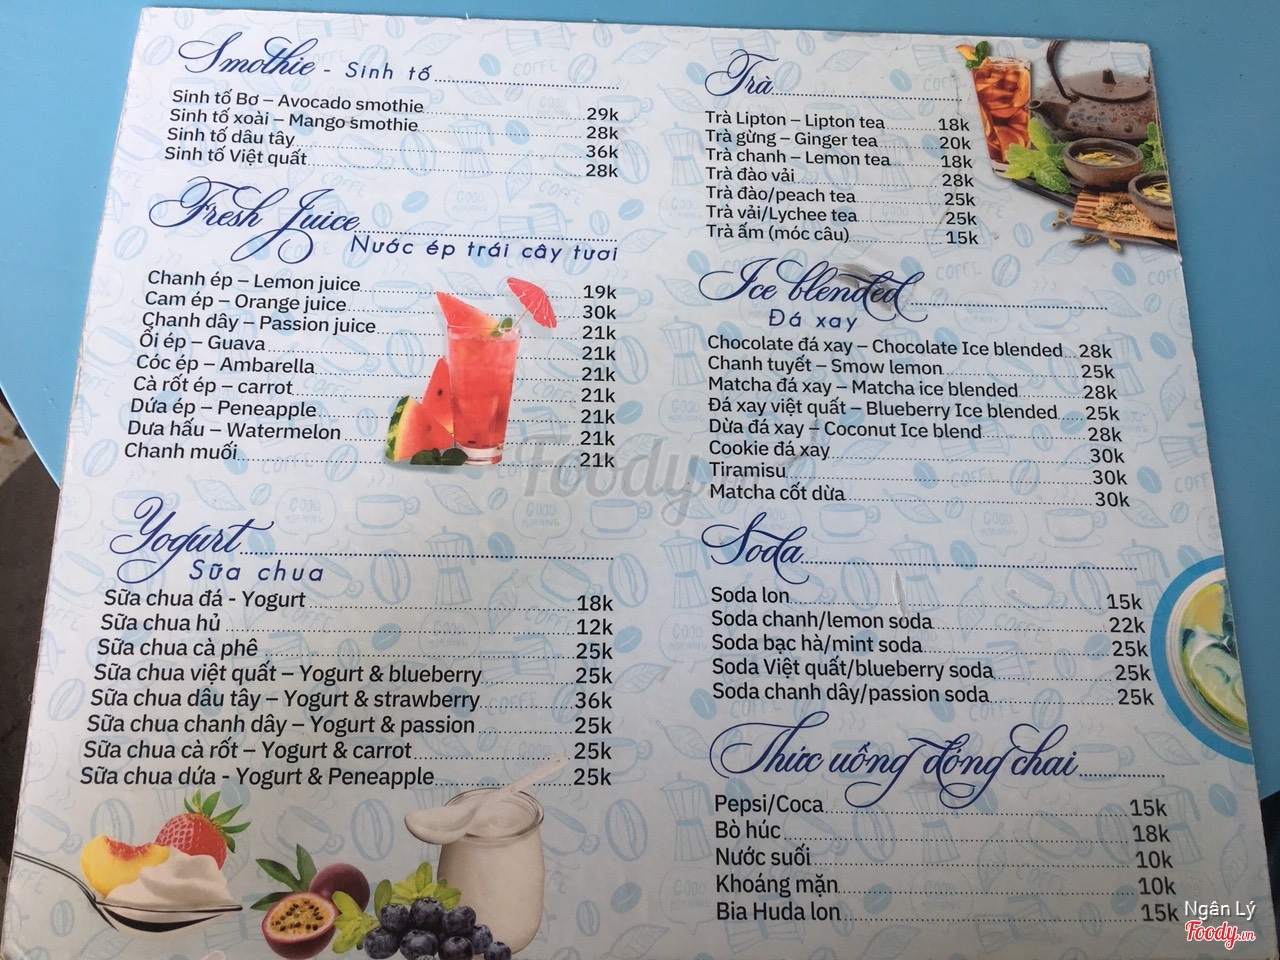 Smothie - Sinh tố
Sinh tố Bơ – Avocado smothie 29k
Sinh tố xoài – Mango smothie 28k
Sinh tố dâu tây 36k
Sinh tố Việt quất 28k
Fresh Juice
Nước ép trái cây tươi
Chanh ép – Lemon juice 19k
Cam ép – Orange juice 30k
Chanh dây – Passion juice 21k
Ổi ép – Guava 21k
Cóc ép – Ambarella 21k
Cà rốt ép – carrot 21k
Dứa ép – Peneapple 21k
Dưa hấu – Watermelon 21k
Chanh muối 21k
Yogurt
Sữa chua
Sữa chua đá - Yogurt 18k
Sữa chua hủ 12k
Sữa chua cà phê 25k
Sữa chua việt quất – Yogurt & blueberry 25k
Sữa chua dâu tây – Yogurt & strawberry 36k
Sữa chua chanh dây – Yogurt & passion 25k
Sữa chua cà rốt – Yogurt & carrot 25k
Sữa chua dứa - Yogurt & Peneapple 25k
Trà
Trà Lipton – Lipton tea 18k
Trà gừng – Ginger tea 20k
Trà chanh – Lemon tea 18k
Trà đào vải 28k
Trà đào/peach tea 25k
Trà vải/Lychee tea 25k
Trà ấm (móc câu) 15k
Ice blended
Đá xay
Chocolate đá xay – Chocolate Ice blended 28k
Chanh tuyết – Smow lemon 25k
Matcha đá xay – Matcha ice blended 28k
Đá xay việt quất – Blueberry Ice blended 25k
Dừa đá xay – Coconut Ice blend 28k
Cookie đá xay 30k
Tiramisu 30k
Matcha cốt dừa 30k
Soda
Soda lon 15k
Soda chanh/lemon soda 22k
Soda bạc hà/mint soda 25k
Soda Việt quất/blueberry soda 25k
Soda chanh dây/passion soda 25k
Thức uống đóng chai
Pepsi/Coca 15k
Bò húc 18k
Nước suối 10k
Khoáng mặn 10k
Bia Huda lon 15k
Foody.vn
Ngân Lý
Foody.vn